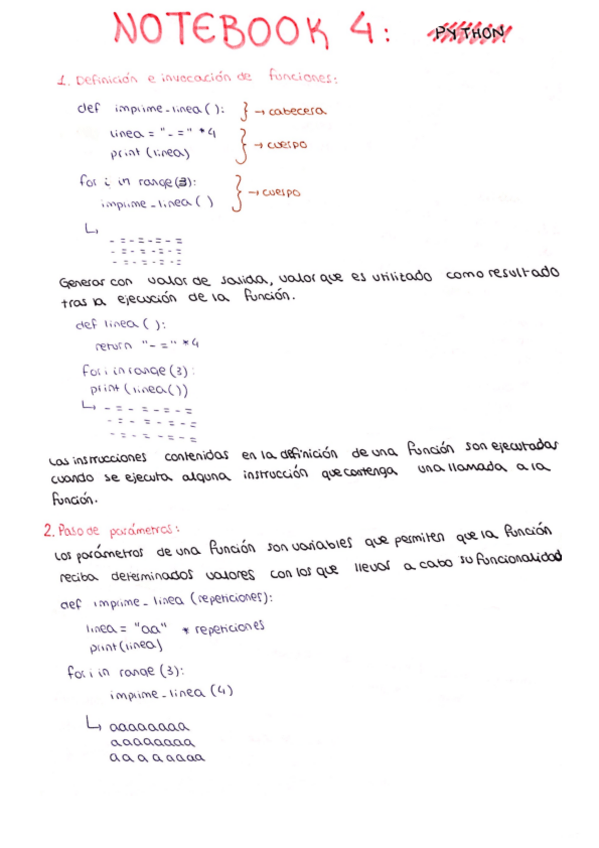 NOTEBOOK 4: PYTHON
1. Definición e invocación de funciones:
def imprime_linea(): } → cabecera
linea = "-=" *4
print (linea) } → cuerpo
for i in range(3):
imprime_linea() } → cuerpo
↳
-=-=-=-=
-=-=-=-=
-=-=-=-=
Generar con valor de salida, valor que es utilizado como resultado
tras la ejecución de la función.
def linea():
return "-=" *4
for i in range(3):
print(linea())
↳ -=-=-=-=
-=-=-=-=
-=-=-=-=
Las instrucciones contenidas en la definición de una función son ejecutadas
cuando se ejecuta alguna instrucción que contenga una llamada a la
función.
2. Paso de parámetros:
Los parámetros de una función son variables que permiten que la función
reciba determinados valores con los que llevar a cabo su funcionalidad
def imprime_linea (repeticiones):
linea = "aa" * repeticiones
print(linea)
for i in range (3):
imprime_linea (4)
↳ aaaaaaaa
aaaaaaaa
aaaaaaaa